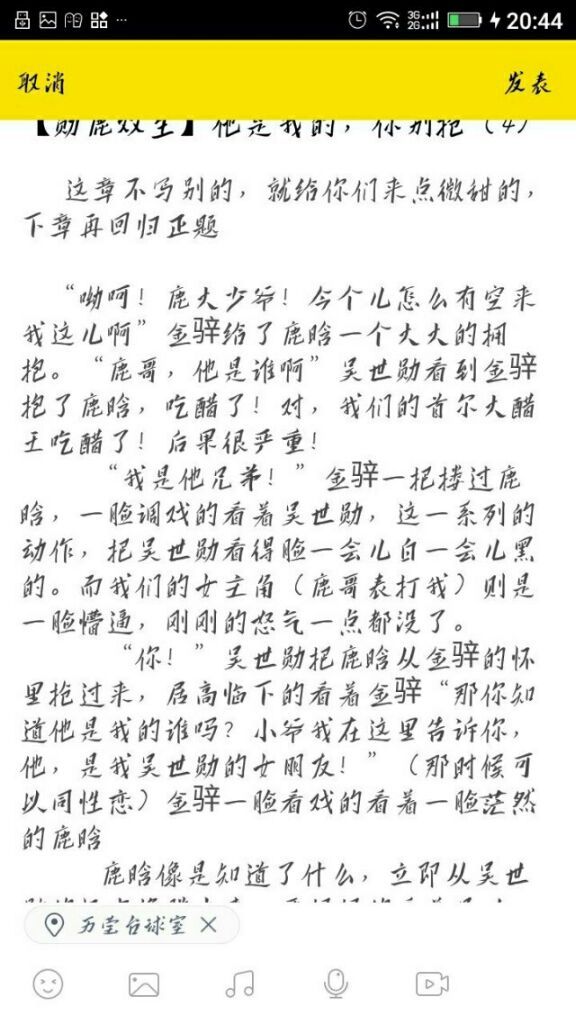 3G
2G
20:44
取消
发表
【勋鹿双生】他是我的，你别抢（4）
这章不写别的，就给你们来点微甜的，
下章再回归正题
“呦呵！鹿大少爷！今个儿怎么有空来
我这儿啊”金骍给了鹿晗一个大大的拥
抱。“鹿哥，他是谁啊”吴世勋看到金骍
抱了鹿晗，吃醋了！对，我们的首尔大醋
王吃醋了！后果很严重！
“我是他兄弟！”金骍一把搂过鹿
晗，一脸调戏的看着吴世勋，这一系列的
动作，把吴世勋看得脸一会儿白一会儿黑
的。而我们的女主角（鹿哥表打我）则是
一脸懵逼，刚刚的怒气一点都没了。
“你！”吴世勋把鹿晗从金骍的怀
里抢过来，居高临下的看着金骍“那你知
道他是我的谁吗？小爷我在这里告诉你，
他，是我吴世勋的女朋友！”（那时候可
以同性恋）金骍一脸看戏的看着一脸茫然
的鹿晗
鹿晗像是知道了什么，立即从吴世
万堂台球室